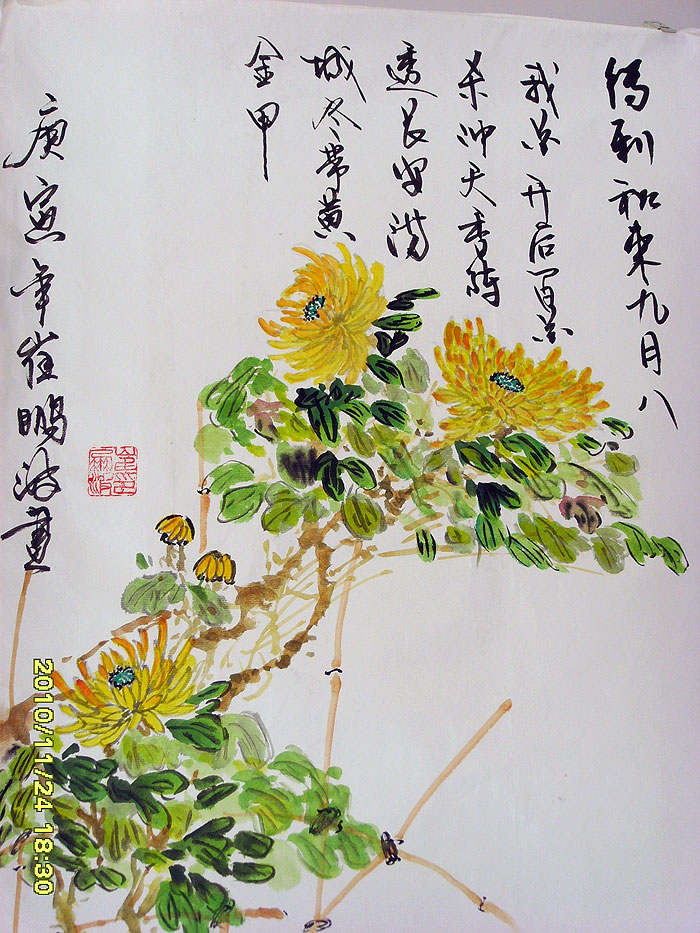 待到秋来九月八
我花开后百花
杀冲天香阵
透长安满
城尽带黄
金甲
庚寅年崔鹏波画
2010/11/24 18:30